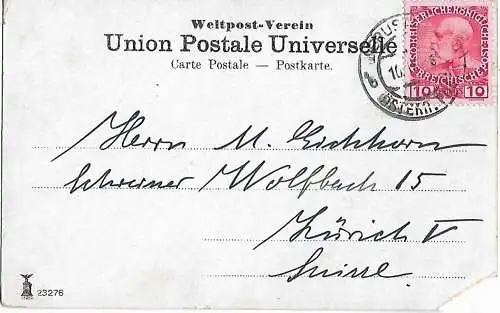 Weltpost-Verein
Union Postale Universelle
Carte Postale — Postkarte.
KAISERLICHE KÖNIGLICHE
ÖSTERREICHISCHE POST
10 10
Herrn M. Eichhorn
Wolfbach 15
Zürich V
Suisse
23276